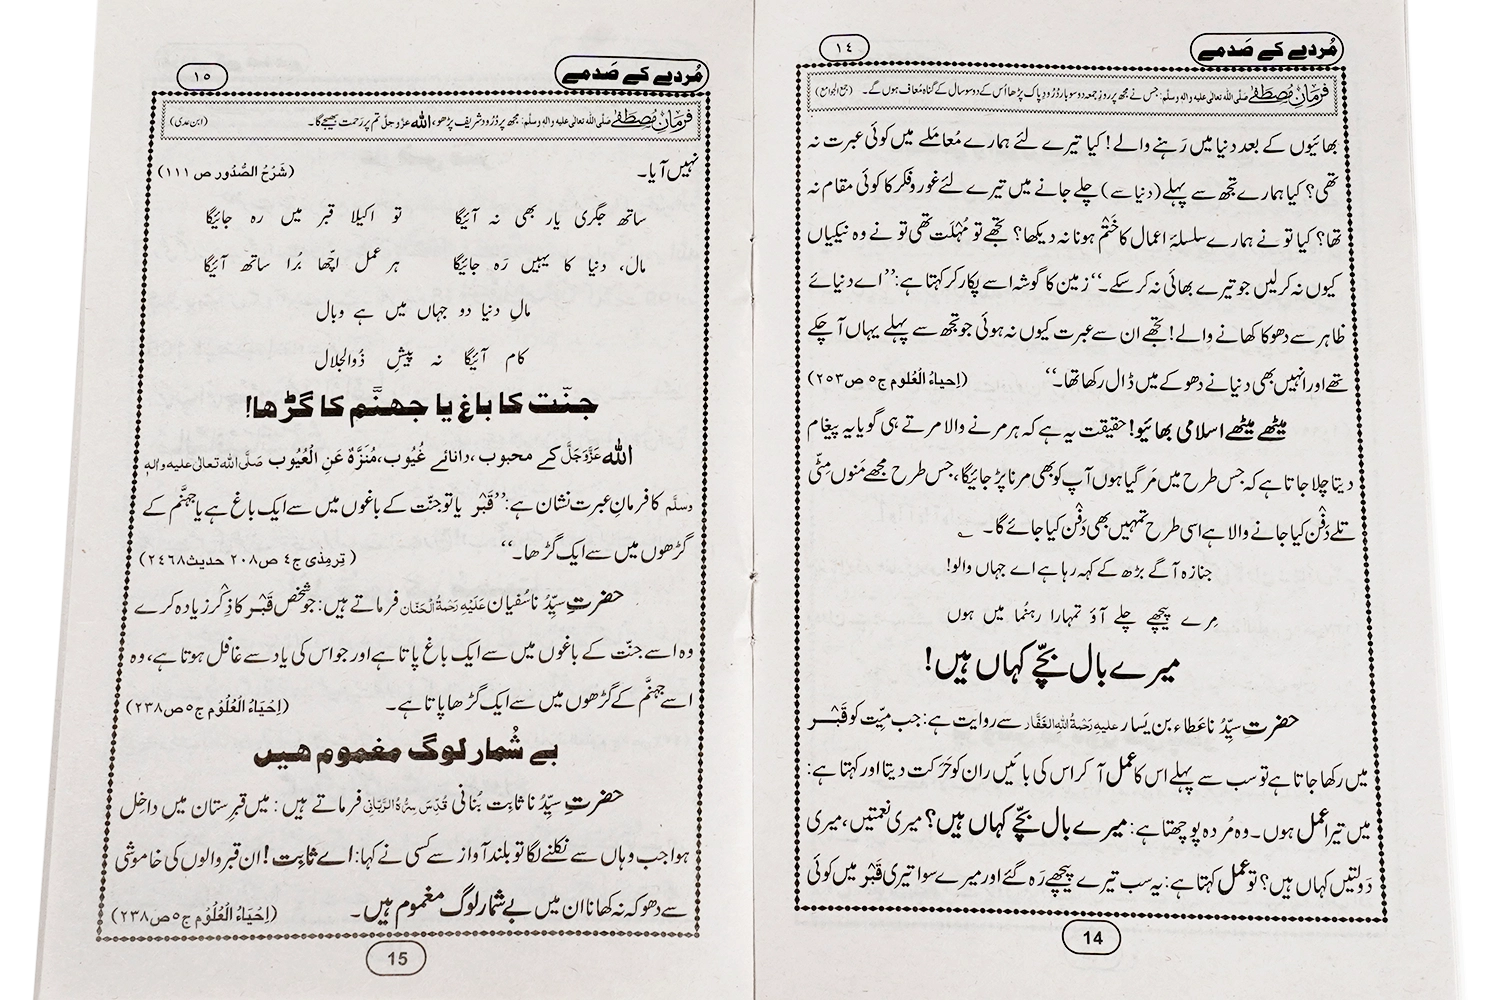 مُردے کے صَدمے
١٤
فرمانِ مُصطَفٰے صلَّی اللہ تعالٰی علیہ واٰلہٖ وسلَّم: جس نے مجھ پر روزِ جمعہ دو سو بار دُرُودِ پاک پڑھا اُس کے دو سو سال کے گناہ مُعاف ہوں گے۔ (جمع الجوامع)
بھائیوں کے بعد دنیا میں رَہنے والے! کیا تیرے لئے ہمارے مُعامَلے میں کوئی عبرت نہ
تھی؟ کیا ہمارے تجھ سے پہلے (دنیا سے) چلے جانے میں تیرے لئے غور و فکر کا کوئی مقام نہ
تھا؟ کیا تو نے ہمارے سلسلۂ اعمال کا خَتْم ہونا نہ دیکھا؟ تجھے تو مُہلَت تھی تو نے وہ نیکیاں
کیوں نہ کر لیں جو تیرے بھائی نہ کر سکے۔‘‘ زمین کا گوشہ اسے پکار کر کہتا ہے: ’’اے دنیائے
ظاہر سے دھوکا کھانے والے! تجھے ان سے عبرت کیوں نہ ہوئی جو تجھ سے پہلے یہاں آ چکے
تھے اور انہیں بھی دنیا نے دھوکے میں ڈال رکھا تھا۔‘‘ (اِحیاءُ الْعُلوم ج٥ ص٢٥٣)
میٹھے میٹھے اسلامی بھائیو! حقیقت یہ ہے کہ ہر مرنے والا مرتے ہی گویا یہ پیغام
دیتا چلا جاتا ہے کہ جس طرح میں مَر گیا ہوں آپ کو بھی مرنا پڑ جائیگا، جس طرح مجھے مَنوں مِٹّی
تلے دَفْن کیا جانے والا ہے اسی طرح تمہیں بھی دَفْن کیا جائے گا۔
جنازہ آگے بڑھ کے کہہ رہا ہے اے جہاں والو!
مِرے پیچھے چلے آؤ تمہارا رہنُما میں ہوں
میرے بال بچّے کہاں ہیں!
حضرتِ سیِّدُنا عَطاء بن یَسار علیہ رَحمۃُ اللہِ الغَفَّار سے روایت ہے: جب میِّت کو قَبْر
میں رکھا جاتا ہے تو سب سے پہلے اس کا عمل آ کر اس کی بائیں ران کو حَرَکت دیتا اور کہتا ہے:
میں تیرا عمل ہوں۔ وہ مُردہ پوچھتا ہے: میرے بال بچّے کہاں ہیں؟ میری نعمتیں، میری
دَولتیں کہاں ہیں؟ تو عمل کہتا ہے: یہ سب تیرے پیچھے رَہ گئے اور میرے سوا تیری قَبْر میں کوئی
14
مُردے کے صَدمے
١٥
فرمانِ مُصطَفٰے صلَّی اللہ تعالٰی علیہ واٰلہٖ وسلَّم: مجھ پر دُرُود شریف پڑھو، اللہ عزَّوجلَّ تم پر رَحمت بھیجے گا۔ (ابن عدی)
نہیں آیا۔ (شَرْحُ الصُّدُور ص ١١١)
ساتھ جگری یار بھی نہ آئیگا تو اکیلا قبر میں رہ جائیگا
مال، دنیا کا یہیں رَہ جائیگا ہر عمل اچّھا بُرا ساتھ آئیگا
مالِ دنیا دو جہاں میں ہے وبال
کام آئیگا نہ پیشِ ذُوالجلال
جنّت کا باغ یا جہنَّم کا گڑھا!
اللہ عَزَّوَجَلَّ کے محبوب، دانائے غُیُوب، مُنَزَّہٌ عَنِ الْعُیُوب صَلَّی اللہ تعالٰی علیہ واٰلہٖ
وسلَّم کا فرمانِ عبرت نشان ہے: ’’قَبْر یا تو جنّت کے باغوں میں سے ایک باغ ہے یا جہنَّم کے
گڑھوں میں سے ایک گڑھا۔‘‘ (تِرمِذی ج٤ ص٢٠٨ حدیث٢٤٦٨)
حضرتِ سیِّدُنا سُفیان عَلَیْہِ رَحْمَۃُ الْحَنَّان فرماتے ہیں: جو شخص قَبْر کا ذِکْر زیادہ کرے
وہ اسے جنّت کے باغوں میں سے ایک باغ پاتا ہے اور جو اس کی یاد سے غافل ہوتا ہے، وہ
اسے جہنَّم کے گڑھوں میں سے ایک گڑھا پاتا ہے۔ (اِحْیَاءُ الْعُلُوْم ج٥ ص٢٣٨)
بے شُمار لوگ مغموم ہیں
حضرتِ سیِّدُنا ثابِت بُنانی قُدِّسَ سِرُّہُ الرَّبَّانِی فرماتے ہیں: میں قبرِستان میں داخِل
ہوا جب وہاں سے نکلنے لگا تو بلند آواز سے کسی نے کہا: اے ثابِت! ان قبر والوں کی خاموشی
سے دھوکہ نہ کھانا ان میں بے شمار لوگ مغموم ہیں۔ (اِحْیَاءُ الْعُلُوْم ج٥ ص٢٣٨)
15